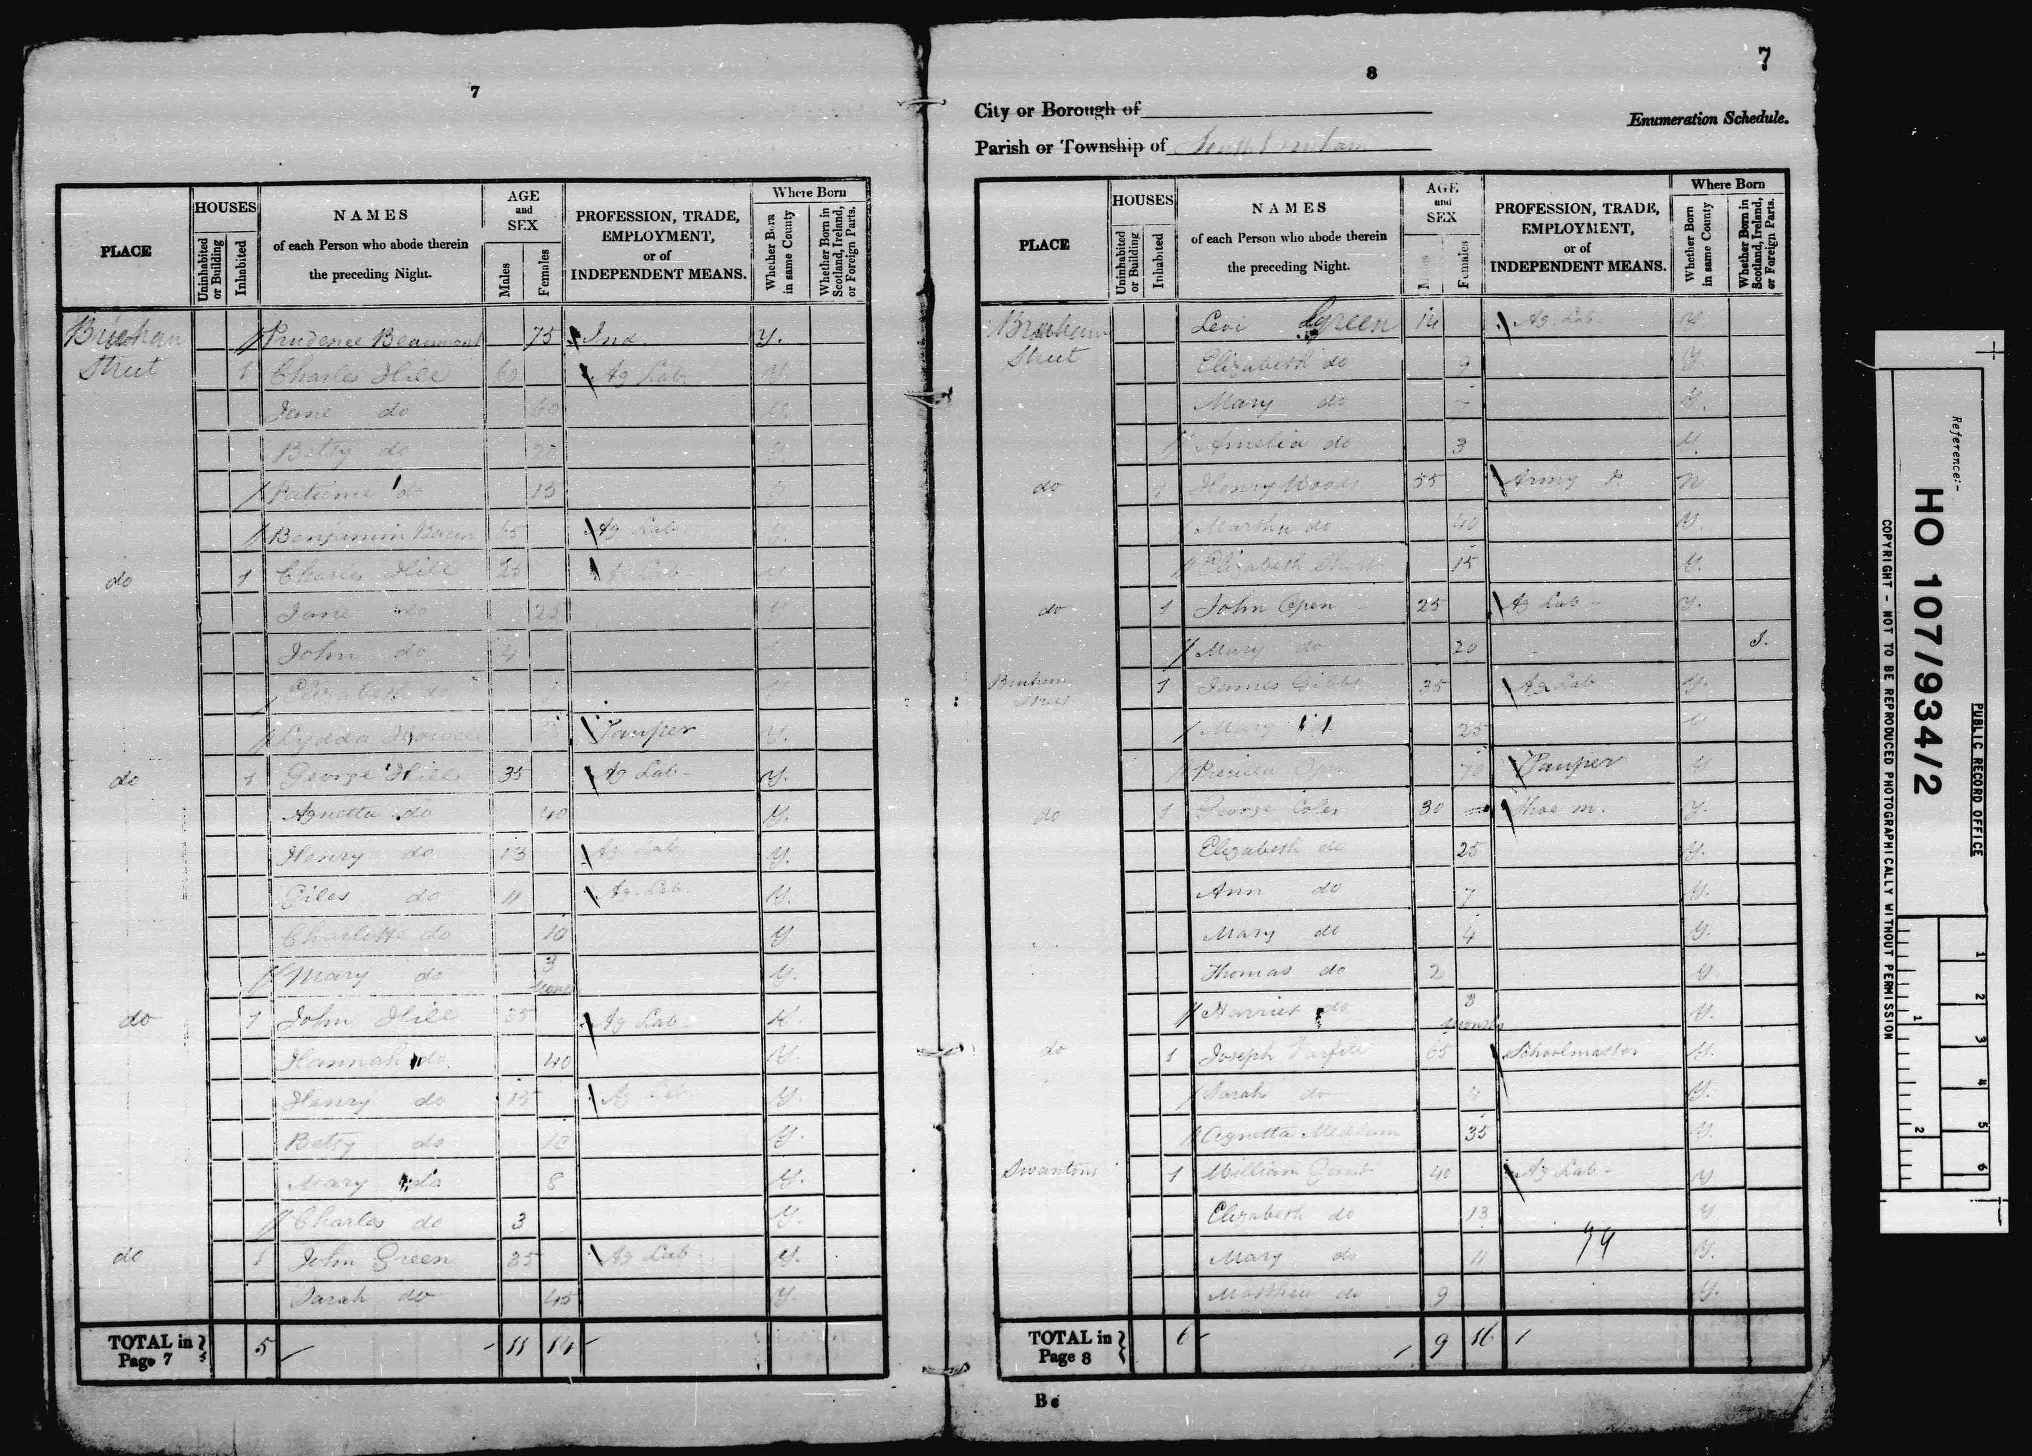 7
PLACE
HOUSES
Uninhabited or Building
Inhabited
NAMES
of each Person who abode therein
the preceding Night.
AGE
and
SEX
Males
Females
PROFESSION, TRADE,
EMPLOYMENT,
or of
INDEPENDENT MEANS.
Where Born
Whether Born in same County
Whether Born in Scotland, Ireland, or Foreign Parts.
Street Prudence Beaumont 75 Ind. Y.
1 Charles Hill 60 Ag Lab Y
Jane do 60 Y.
Betsy do 20 Y
do 15
Benjamin 65 Ag Lab Y.
do 1 Charles Hill 25 Ag Lab Y
Jane do 25 Y
John do 4
do
Pauper Y.
do 1 George Hill 35 Ag Lab Y.
Agnetta do 40 Y.
Henry do 13 Ag Lab Y.
Giles do 11 Ag Lab Y.
Charlotte do 10 Y
Mary do 3 Y.
do 1 John Hill 35 Ag Lab
Hannah do 40 Y.
Henry do 15 Ag Lab Y.
Betsy do 10 Y.
Mary do 8 Y.
Charles do 3 Y.
do 1 John Green 35 Ag Lab Y.
Sarah do 45 Y.
TOTAL in Page 7 5 11 14
8
7
City or Borough of
Enumeration Schedule.
Parish or Township of
PLACE
HOUSES
Uninhabited or Building
Inhabited
NAMES
of each Person who abode therein
the preceding Night.
AGE
and
SEX
Females
PROFESSION, TRADE,
EMPLOYMENT,
or of
INDEPENDENT MEANS.
Where Born
Whether Born in same County
Whether Born in Scotland, Ireland, or Foreign Parts.
Street Levi Green 14 Ag. Lab Y
Elizabeth do 9 Y.
Mary do 7 Y.
Amelia do 3 Y.
do 1 Henry Woods 55 Army P. N
Martha do 40 Y.
Elizabeth 15 Y.
do 1 John Open 25 Ag Lab Y.
Mary do 20 I.
Street 1 James Gibbs 35 Ag Lab Y.
Mary 25 Y
70 Pauper Y
do 1 George Coles 30 Shoe m. Y.
Elizabeth do 25 Y.
Ann do 7 Y.
Mary do 4 Y.
Thomas do 2 Y
Harriet do 3 months Y.
do 1 Joseph 65 Schoolmaster Y.
Sarah do Y.
Agnetta 35 Y.
Swantons 1 William 40 Ag Lab Y
Elizabeth do 13 Y
Mary do 11 Y.
Matthew do 9 Y.
TOTAL in Page 8 6 9 16
B
Reference:-
HO 107/934/2
PUBLIC RECORD OFFICE
COPYRIGHT - NOT TO BE REPRODUCED PHOTOGRAPHICALLY WITHOUT PERMISSION
1
2
3
4
5
6
1
2